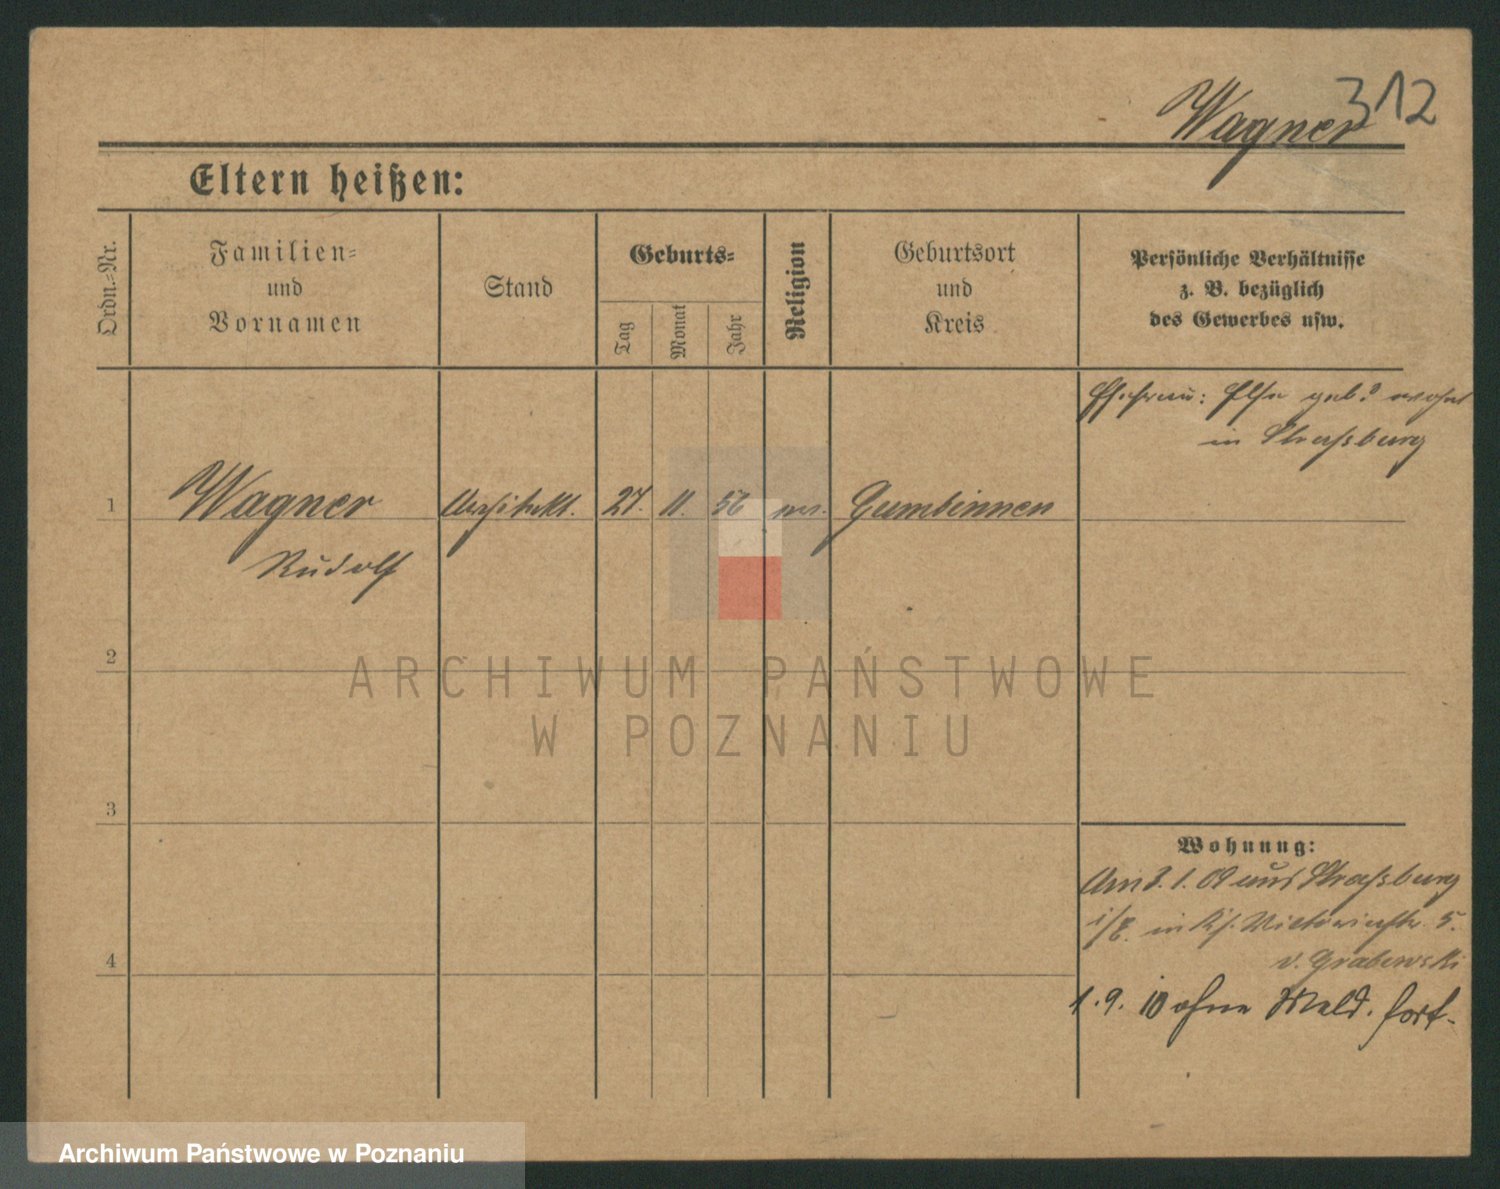 312
Wagner
Eltern heißen:
Ordn.-Nr.
Familien-
und
Vornamen
Stand
Geburts-
Tag
Monat
Jahr
Religion
Geburtsort
und
Kreis
Persönliche Verhältnisse
z. B. bezüglich
des Gewerbes usw.
Ehefrau: Else geb? wohnt
in Straßburg
1 Wagner Architekt. 27. 11. 56 Gumbinnen
Rudolf
2
3
4
Wohnung:
Am 3.1.09 aus Straßburg
i/E. in Victoriastr. 5.
v. Grabowski
1.9.10 ohne Meld. fort.
ARCHIWUM PAŃSTWOWE
W POZNANIU
Archiwum Państwowe w Poznaniu